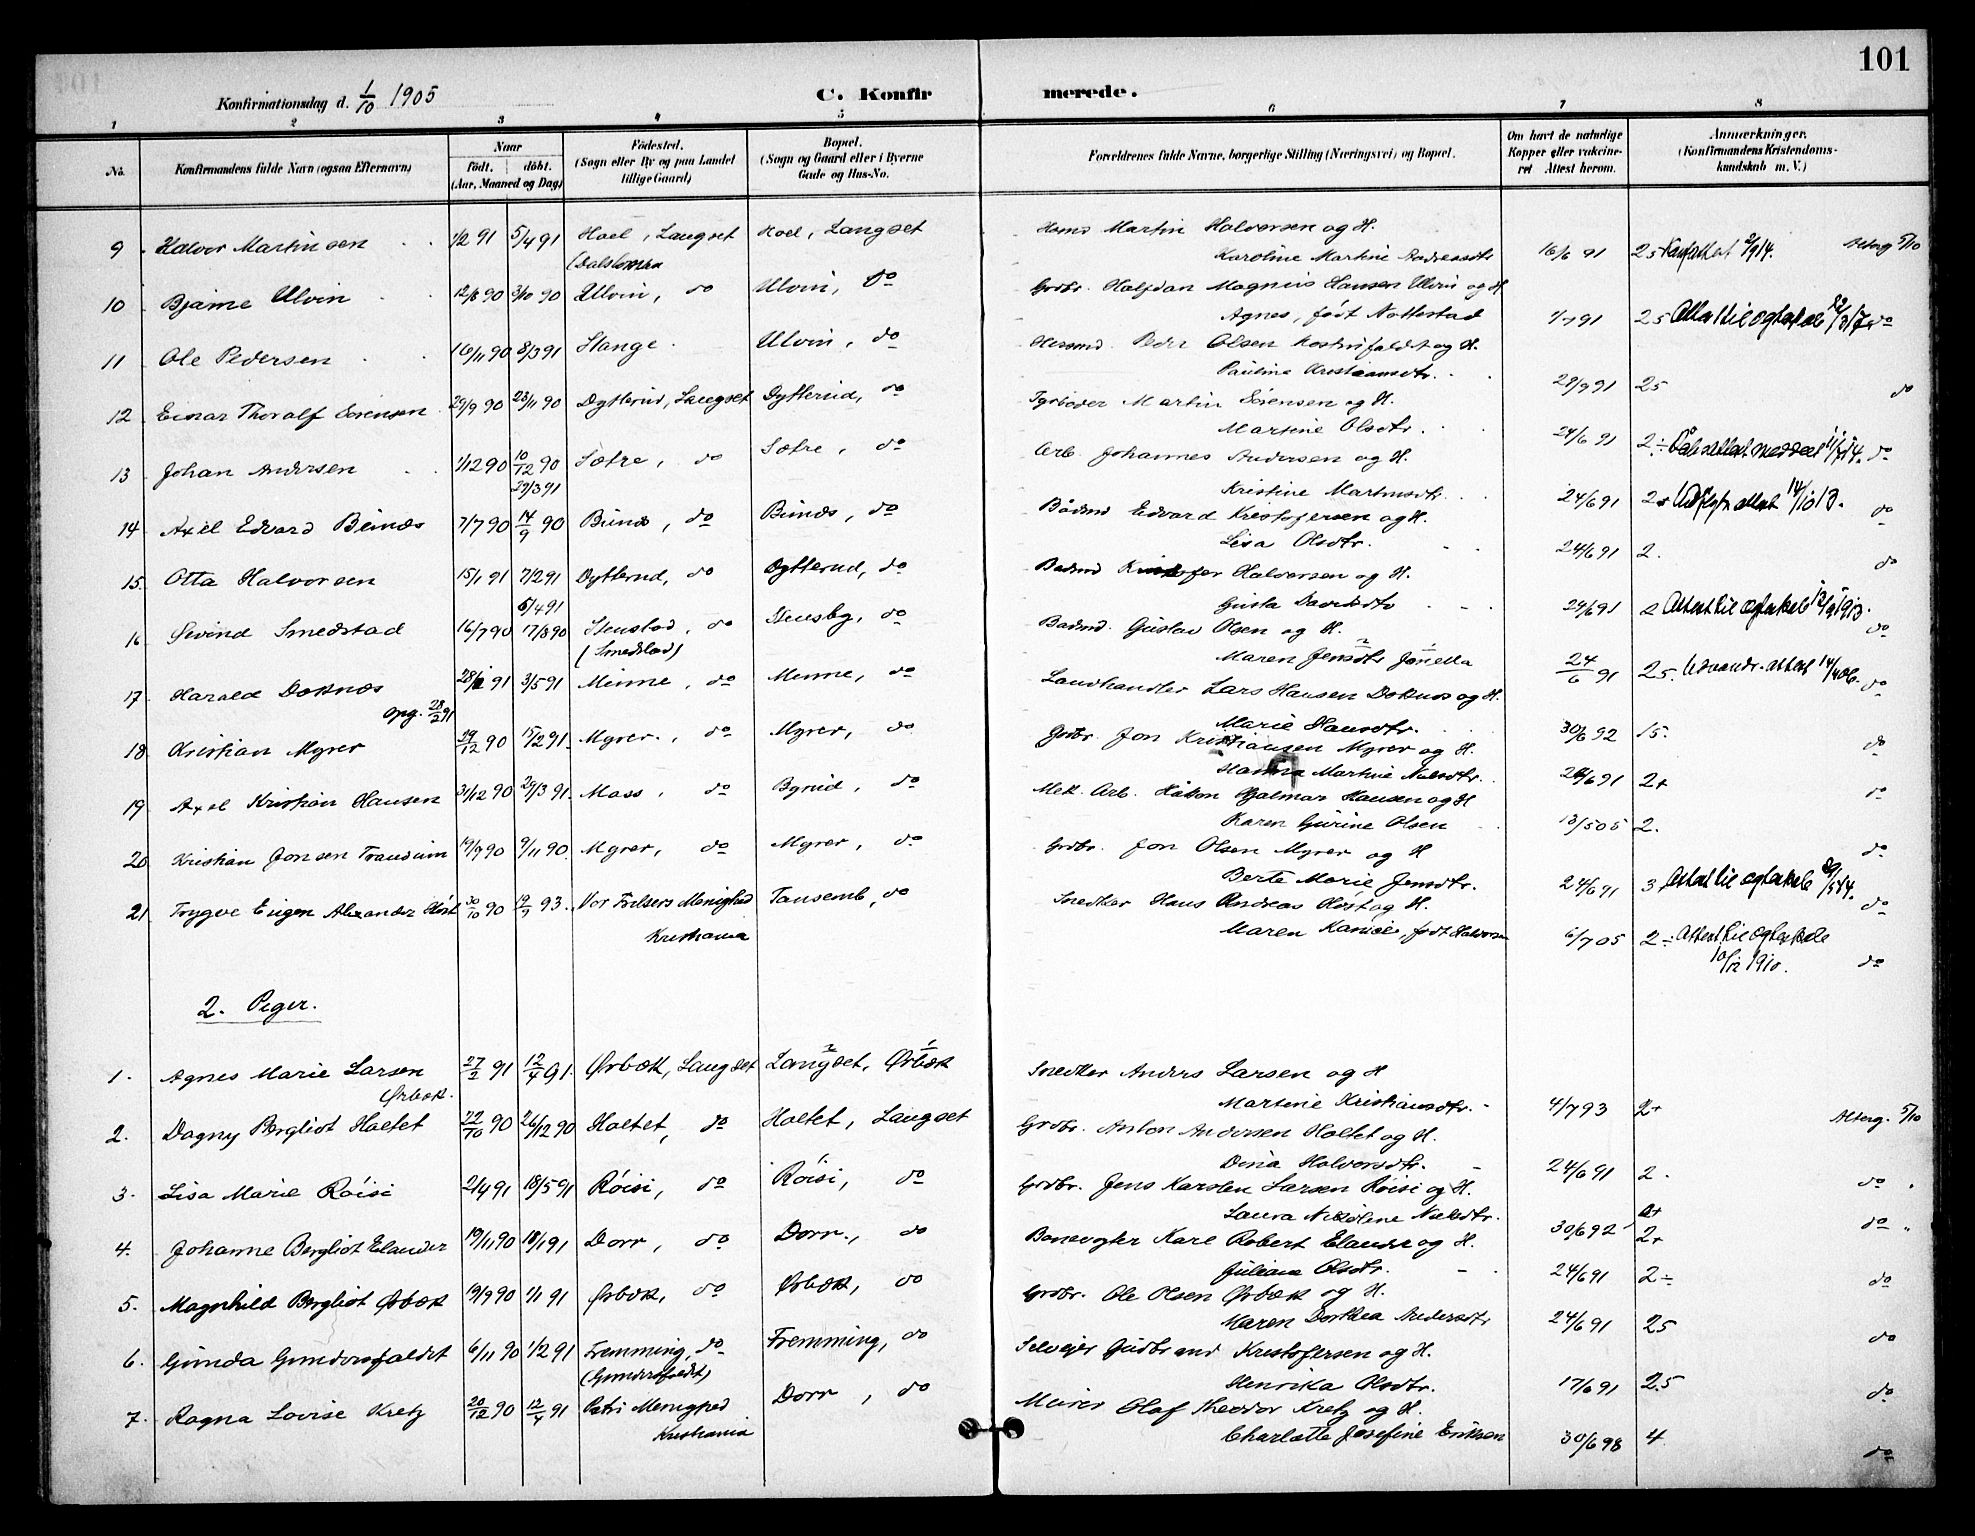 101
Konfirmationsdag d. 1/10 1905
C. Konfirmerede.
1 2 3 4 5 6 7 8
No. Konfirmandens fulde Navn (ogsaa Efternavn) Naar født. døbt. (Aar, Maaned og Dag) Fødested. (Sogn eller By og paa Landet tillige Gaard) Bopæl. (Sogn og Gaard eller i Byerne Gade og Hus-No. Forældrenes fulde Navne, borgerlige Stilling (Næringsvei) og Bopæl. Om havt de naturlige Kopper eller vakcineret Attest herom. Anmærkninger. (Konfirmandens Kristendomskundskab m. V.)
9 Halvor Martinsen 1/2 91 5/4 91 Hoel, Langset Hoel, Langset Martin Halvorsen og H.
(Dalsbraaten Karoline Martine Andreasdtr 16/6 91 25 Alterg 5/10
10 Bjarne Ulvin 12/8 90 3/10 90 Ulvin, do Ulvin, do Grdbr. Halfdan Magnus Hansen Ulvin og H
Agnes, født Nottestad 1/7 91 25 do
11 Ole Pedersen 16/11 90 8/3 91 Stange Ulvin, do Peder Olsen og H.
Pauline Kristiansdtr. 29/9 91 25 do
12 Einar Thoralf Sørensen 29/9 90 23/11 90 Dytterud, Langset Dytterud, do Martin Sørensen og H.
Martine Olsdtr. 24/6 91 2÷ do
13 Johan Andersen 1/12 90 10/12 90 Sætre, do Sætre, do Arb. Johannes Andersen og H.
29/3 91 Kristine Martinsdtr. 24/6 91 2+ Udflytn attest 14/10 13. do
14 Axel Edvard Beinæs 7/7 90 14/9 90 Beinæs, do Beinæs, do Bådmd Edvard Kristofersen og H.
Lisa Olsdtr. 24/6 91 2. do
15. Otta Halvorsen 15/1 91 7/2 91 Dytterud, do Dytterud, do Baadmd Kristofer Halvorsen og H.
5/4 91 Gusta Davidsdtr 29/6 91 2 Attest til ægteskab 13/9 1913. do
16 Øivind Smedstad 16/7 90 17/3 90 Stensbod, do Stensby, do Baadmd. Gustav Olsen og H.
(Smedstad) Maren Jensdtr Jonetta 24/6 91 25. Udvandr.-attest 14/4 06. do
17 Harald Doknæs 28/1 91 3/5 91 Minne, do Minne, do Landhandler Lars Hansen Doknæs og H.
opg. 28/2 91 Marie Hansdtr. 30/6 92 15. do
18 Kristian Myrer 29/12 90 15/2 91. Myrer., do Myrer, do Grdbr. Jon Kristiansen Myrer og H.
Hanna Martine Nielsdtr. 24/6 91 2+ do
19 Axel Kristian Hansen 31/12 90 29/3 91. Moss, do Byrud, do Mek. Arb. Håkon Hjalmar Hansen og H
Karen Gurine Olsen 13/5 05 2. do
20 Kristian Jonsen Trandum 19/9 90 9/11 90. Myrer, do Myrer, do Grdbr. Jon Olsen Myrer og H
Berte Marie Jensdtr. 24/6 91 3 Attest til ægteskab do
21 Trygve Eugen Alexander Høst 30/10 90 93. Vor Frelsers Menighed Tansemb, do Snedker Hans Andreas Høst og H.
Kristiania Maren født Halvorsen 6/7 05 2÷ Attest til ægteskab
10/12 1910. do
2. Piger.
1. Agnes Marie Larsen 27/2 91 12/4 91. Ørbæk, Langset Langset, Ørbæk Snedker Anders Larsen og H
Ørbæk. Martine Kristiansdtr. 4/7 93 2+ Alterg. 5/10
2. Dagny Bergliot Holtet 22/10 90 26/12 90 Holtet, do Holtet, Langset Grdbr. Anton Andersen Holtet og H.
Dina Halvorsdtr. 24/6 91 2. do
3. Lisa Marie Röisi 2/4 91 18/5 91 Röisi, do Röisi, do Grdbr. Jens Karsten Larsen Röisi og H.
Laura Nikoline Nielsdtr. 30/6 92 2+ do
4. Johanne Bergliot Elander 19/11 90 18/1 91 Dorr, do Dorr., do Banevogter Karl Robert Elander og H. 2+
Juliane Olsdtr. 24/6 91 2÷ do
5. Magnhild Bergliot Ørbæk 19/9 90 1/1 91 Ørbæk, do Ørbæk, do Grdbr. Ole Olsen Ørbæk og H.
Maren Dorthea Andersdtr 24/6 91 25 do
6. Gunda Gundersfaldet 6/11 90 1/2 91 Fremming, do Fremming, do Selveier Gudbrand Kristofersen og H.
(Gundersfaldet) Henrika Olsdtr. 17/6 91 2.5 do
7. Ragna Lovise Kretz 20/12 90 12/4 91 Petri Menighed Dorr, do Murer Olaf Theodor Kretz og H.
Kristiania Charlotte Josefine Eriksen 30/6 98 4 do